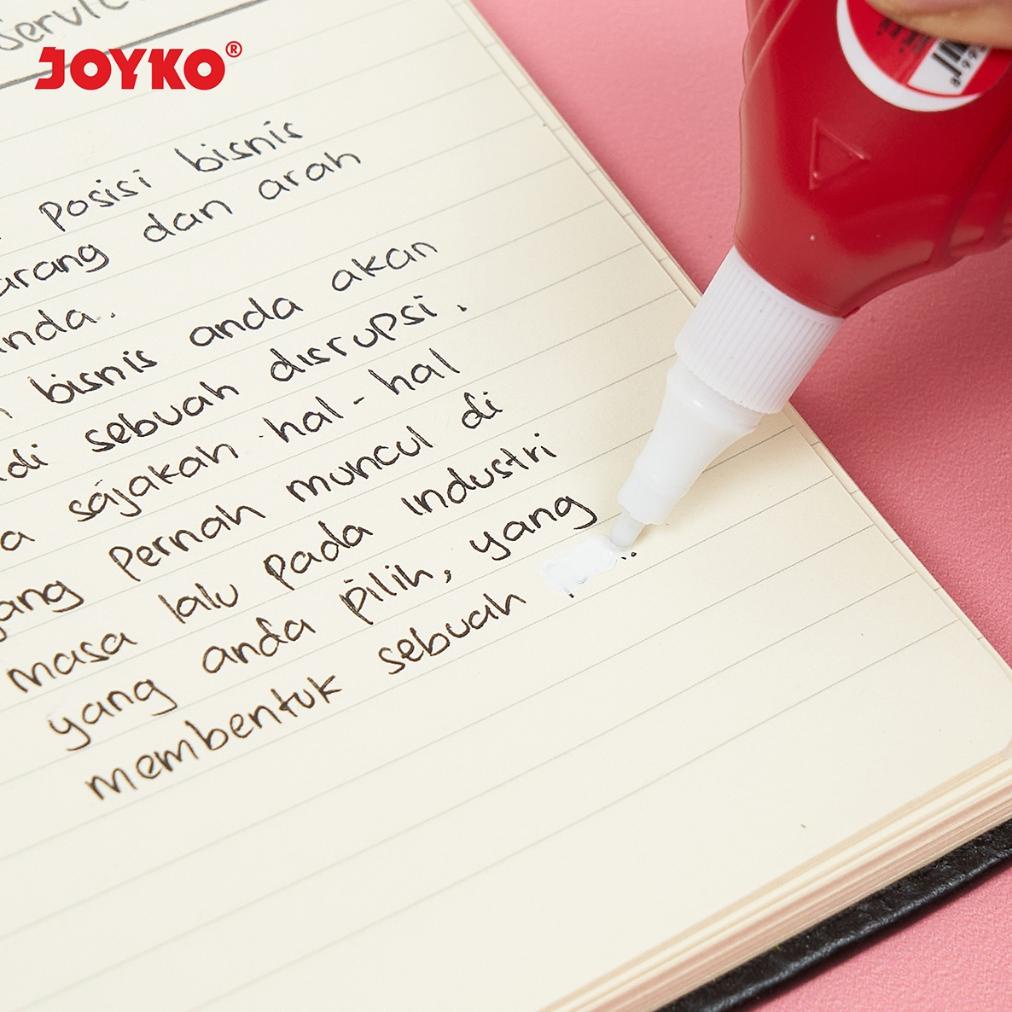 Service
JOYKO®
posisi bisnis
arang dan arah
nda.
bisnis anda akan
di sebuah disrupsi.
a sajakah hal-hal
ang pernah muncul di
masa lalu pada industri
yang anda pilih, yang
membentuk sebuah